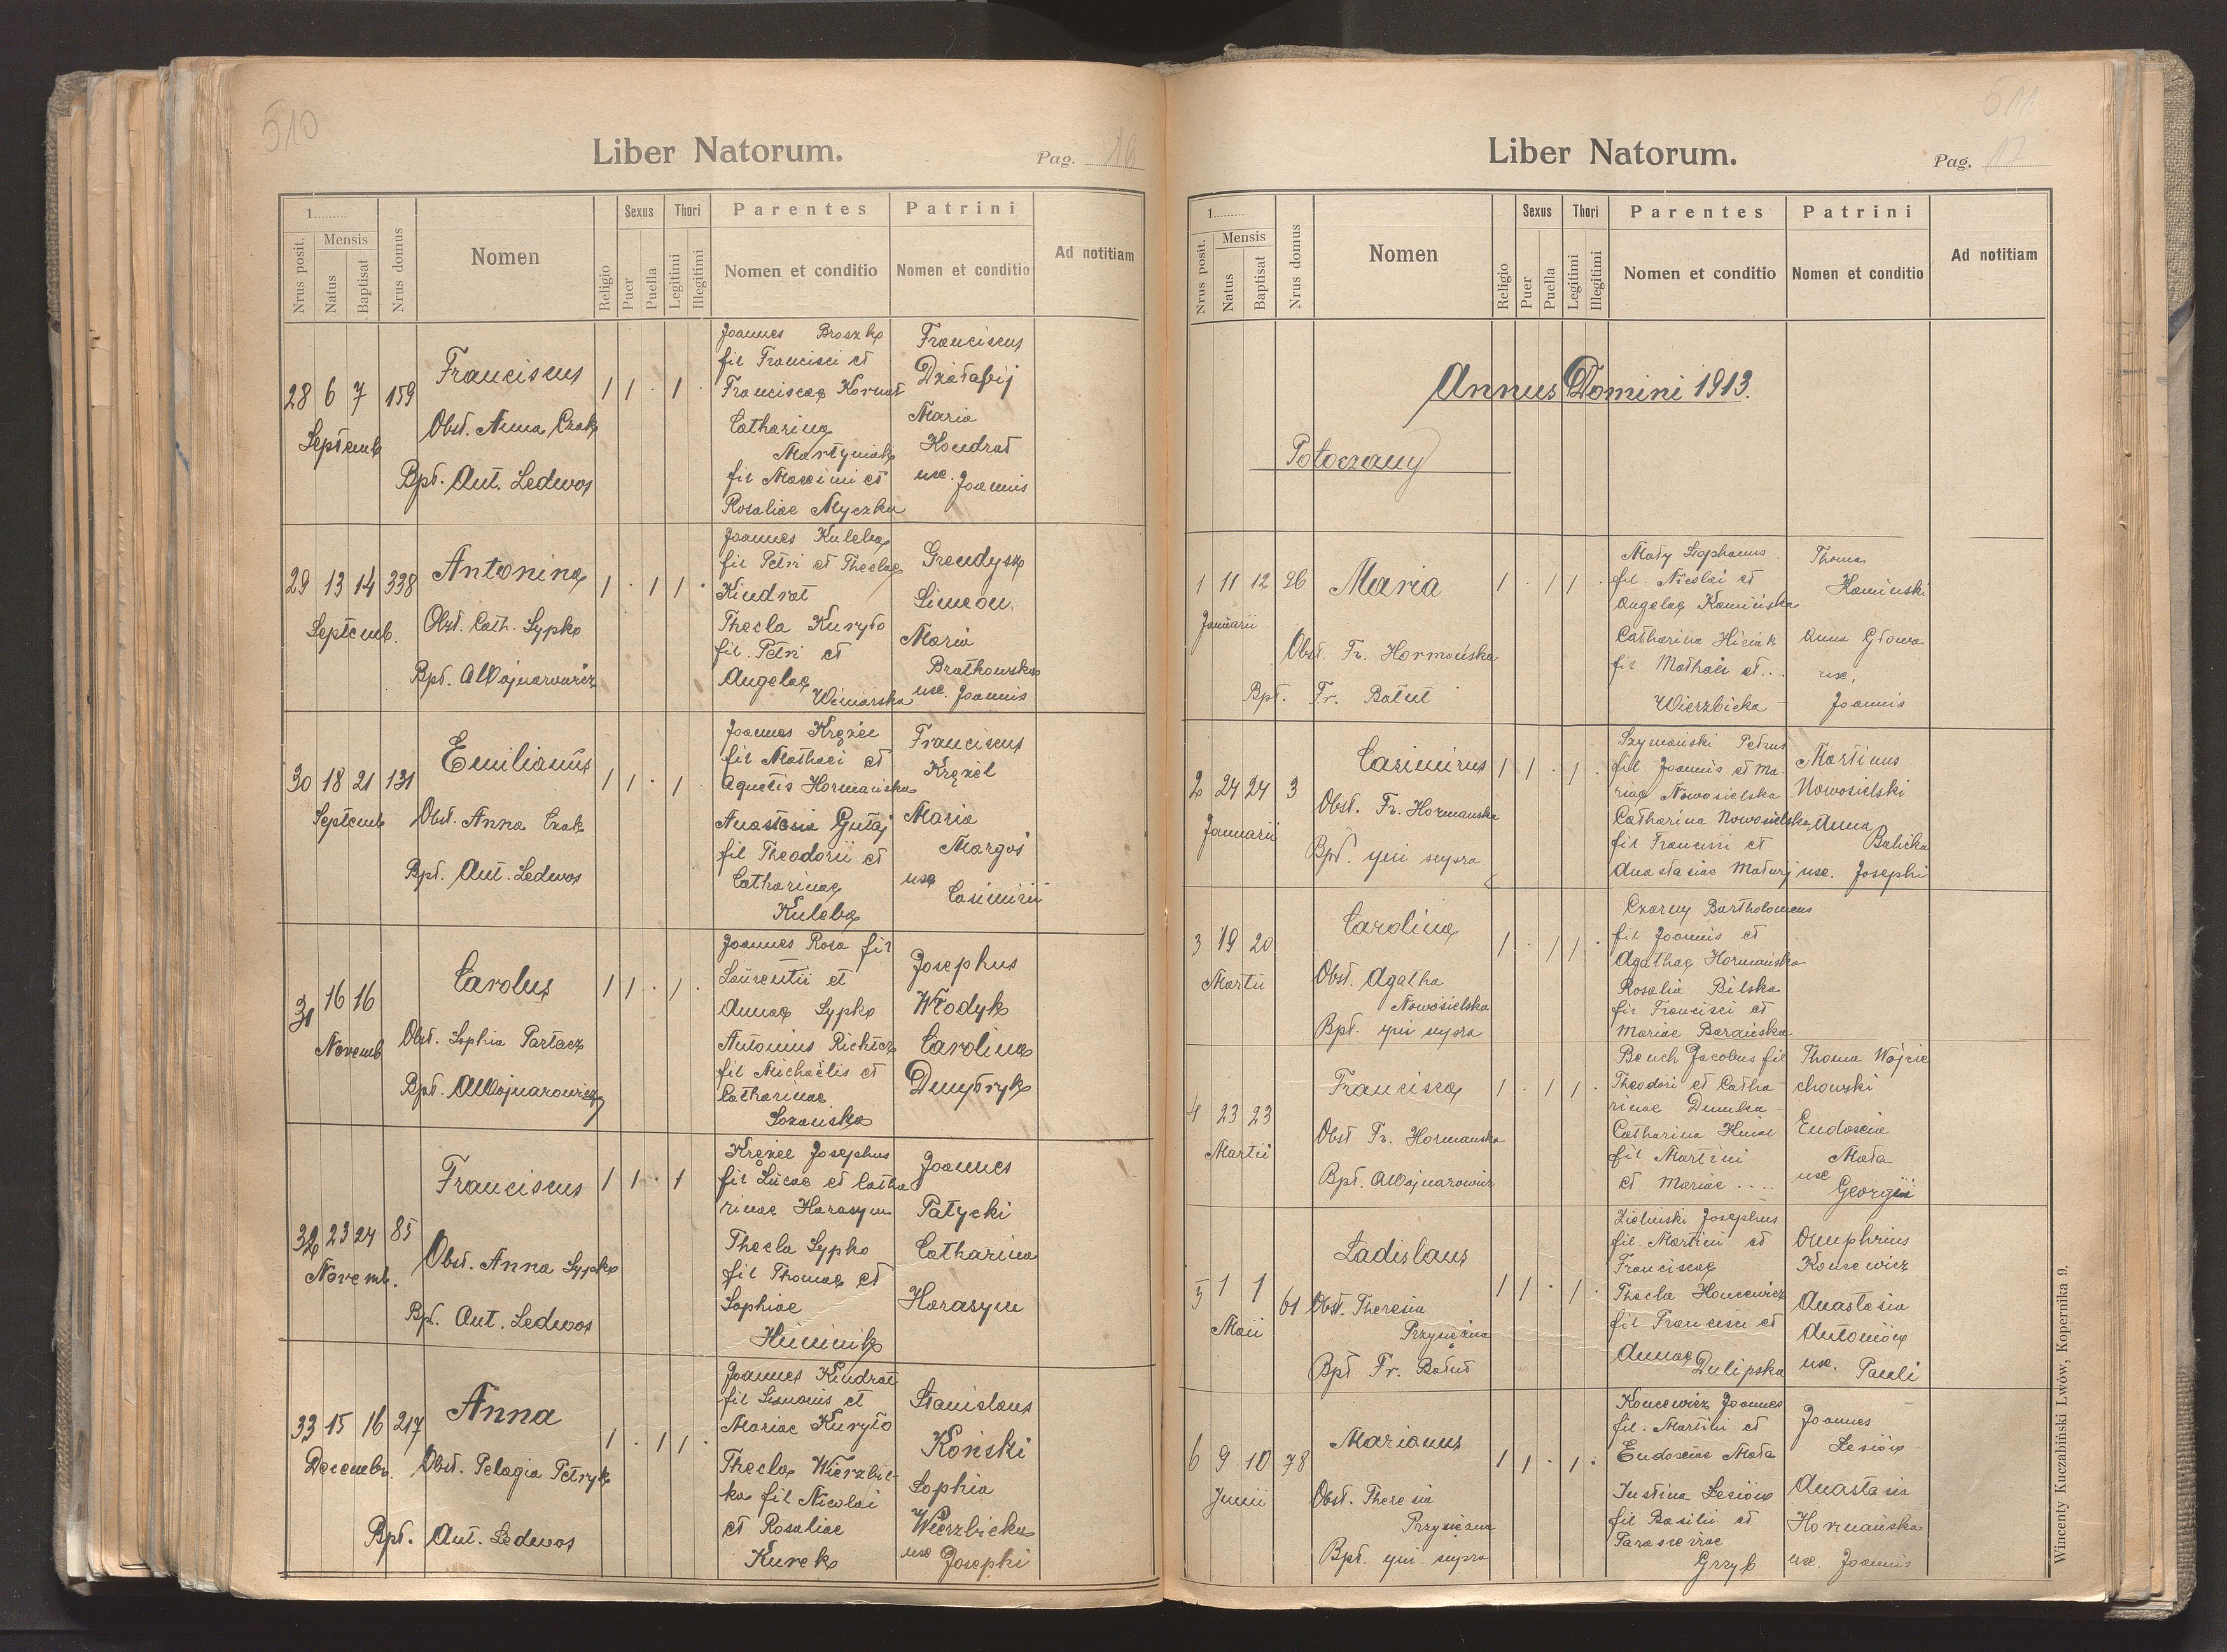 510
Liber Natorum.
Pag. 16
1........
Mensis
Nrus posit.
Natus
Baptisat
Nrus domus
Nomen
Religio
Sexus
Puer
Puella
Thori
Legitimi
Illegitimi
Parentes
Nomen et conditio
Patrini
Nomen et conditio
Ad notitiam
28 6 7 159
Septemb
Franciscus
Obst. Anna Czak
Bpt. Ant. Ledwos
1 1 . 1 .
Joannes Broszko
fil Francisci et
Franciscae Kornat
Catharina
Martyniak
fil Maximi et
Rosaliae Myczka
Franciscus
Maria
Kondrat
ux. Joannis
29 13 14 338
Septemb.
Antonina
Obst. Cath. Sypko
Bpt. A Wojnarowicz
1 . 1 1 .
Joannes Kuleba
fil Petri et Theclae
Kindrat
Thecla Kuryło
fil. Petri et
Angelae
Winiarska
Grendysa
Simeon.
Maria
Bratkowska
ux. Joannis
30 18 21 131
Septemb
Emilianus
Obst. Anna Czak
Bpt. Ant. Ledwos
1 1 . 1
Joannes Krężel
fil Mathaei et
Agnetis Hormańska
Anastasia Gutaj
fil Theodorii et
Catharinae
Kuleba
Franciscus
Krężel
Maria
Margos
ux
Casimirii
31 16 16
Novemb
Carolus
Obst. Sophia Partacz
Bpt. A Wojnarowicz
1 1 . 1 .
Joannes Rosa fil
Laurentii et
Annae Sypko
Antonina Richter
fil Michaëlis et
Catharinae
Sozańska
Josephus
Włodyk
Carolina
Dmytryk
32 23 24 85
Novemb.
Franciscus
Obst. Anna Sypko
Bpt. Ant. Ledwos
1 1 . 1
Krężel Josephus
fil Lucae et Catha
rinae Harasym
Thecla Sypko
fil Thomae et
Sophiae
Huminik
Joannes
Patycki
Catharina
Harasym
33 15 16 217
Decembr.
Anna
Obst. Pelagia Petryk
Bpt. Ant. Ledwos
1 . 1 1 .
Joannes Kindrat
fil Simonis et
Mariae Kuryło
Thecla Wierzbic-
ka fil Nicolai
et Rosaliae
Kurek
Stanislaus
Koński
Sophia
Wierzbicka
ux Josephi
511
Liber Natorum.
Pag. 17
1........
Mensis
Nrus posit.
Natus
Baptisat
Nrus domus
Nomen
Religio
Sexus
Puer
Puella
Thori
Legitimi
Illegitimi
Parentes
Nomen et conditio
Patrini
Nomen et conditio
Ad notitiam
Annus Domini 1913.
Potoczany
1 11 12 26
Januarii
Maria
Obst. Fr. Hormańska
Bpt. Fr. Bałut
1 . 1 1 .
Mały Stephanus
fil Nicolai et
Angelae Kamińska
Catharina Hiniak
fil Mathaei et...
Wierzbicka
Thomas
Kaminski
Anna Głowa
ux.
Joannis
2 24 24 3
Januarii
Casimirus
Obst. Fr. Hormanska
Bpt. qui supra
1 1 . 1 .
Szymański Petrus
fil. Joannis et Ma-
riae Nowosielska
Catharina Nowosielska
fil Francisci et
Anastasiae Maturj
Martinus
Nowosielski
Anna
Balicka
ux. Josephi
3 19 20
Martii
Carolina
Obst. Agatha
Nowosielska
Bpt. qui supra
1 . 1 1 .
Czarny Bartholomeus
fil Joannis et
Agathae Hormańska
Rosalia Bilska
fil Francisci et
Mariae Barańska
4 23 23
Martii
Francisca
Obst Fr. Hormanska
Bpt. A Wojnarowicz
1 . 1 1 .
Bench Jacobus fil
Theodori et Catha-
rinae Dumka
Catharina Hnat
fil Martini
et Mariae ...
Thoma Wojcie
chowski
Eudoxia
Mała
ux
Georgii
5 1 1 61
Maii
Ladislaus
Obst. Theresia
Przysiężna
Bpt Fr. Bałut
1 1 . 1 .
Zieliński Josephus
fil. Martini et
Franciscae
Thecla Koncewicz
fil Francisci et
Annae Dulipska
Onuphrius
Koncewicz
Anastasia
Antoniów
ux. Pauli
6 9 10 78
Junii
Marianus
Obst. Theresia
Przysiężna
Bpt. qui supra
1 1 . 1 .
Koncewicz Joannes
fil. Martini et
Eudoxiae Mała
Justina Lesiów
fil Basilii et
Parasceviae
Grzyb
Joannes
Lesiów
Anastasia
Hormańska
ux. Joannis
Wincenty Kuczabiński Lwów, Kopernika 9.